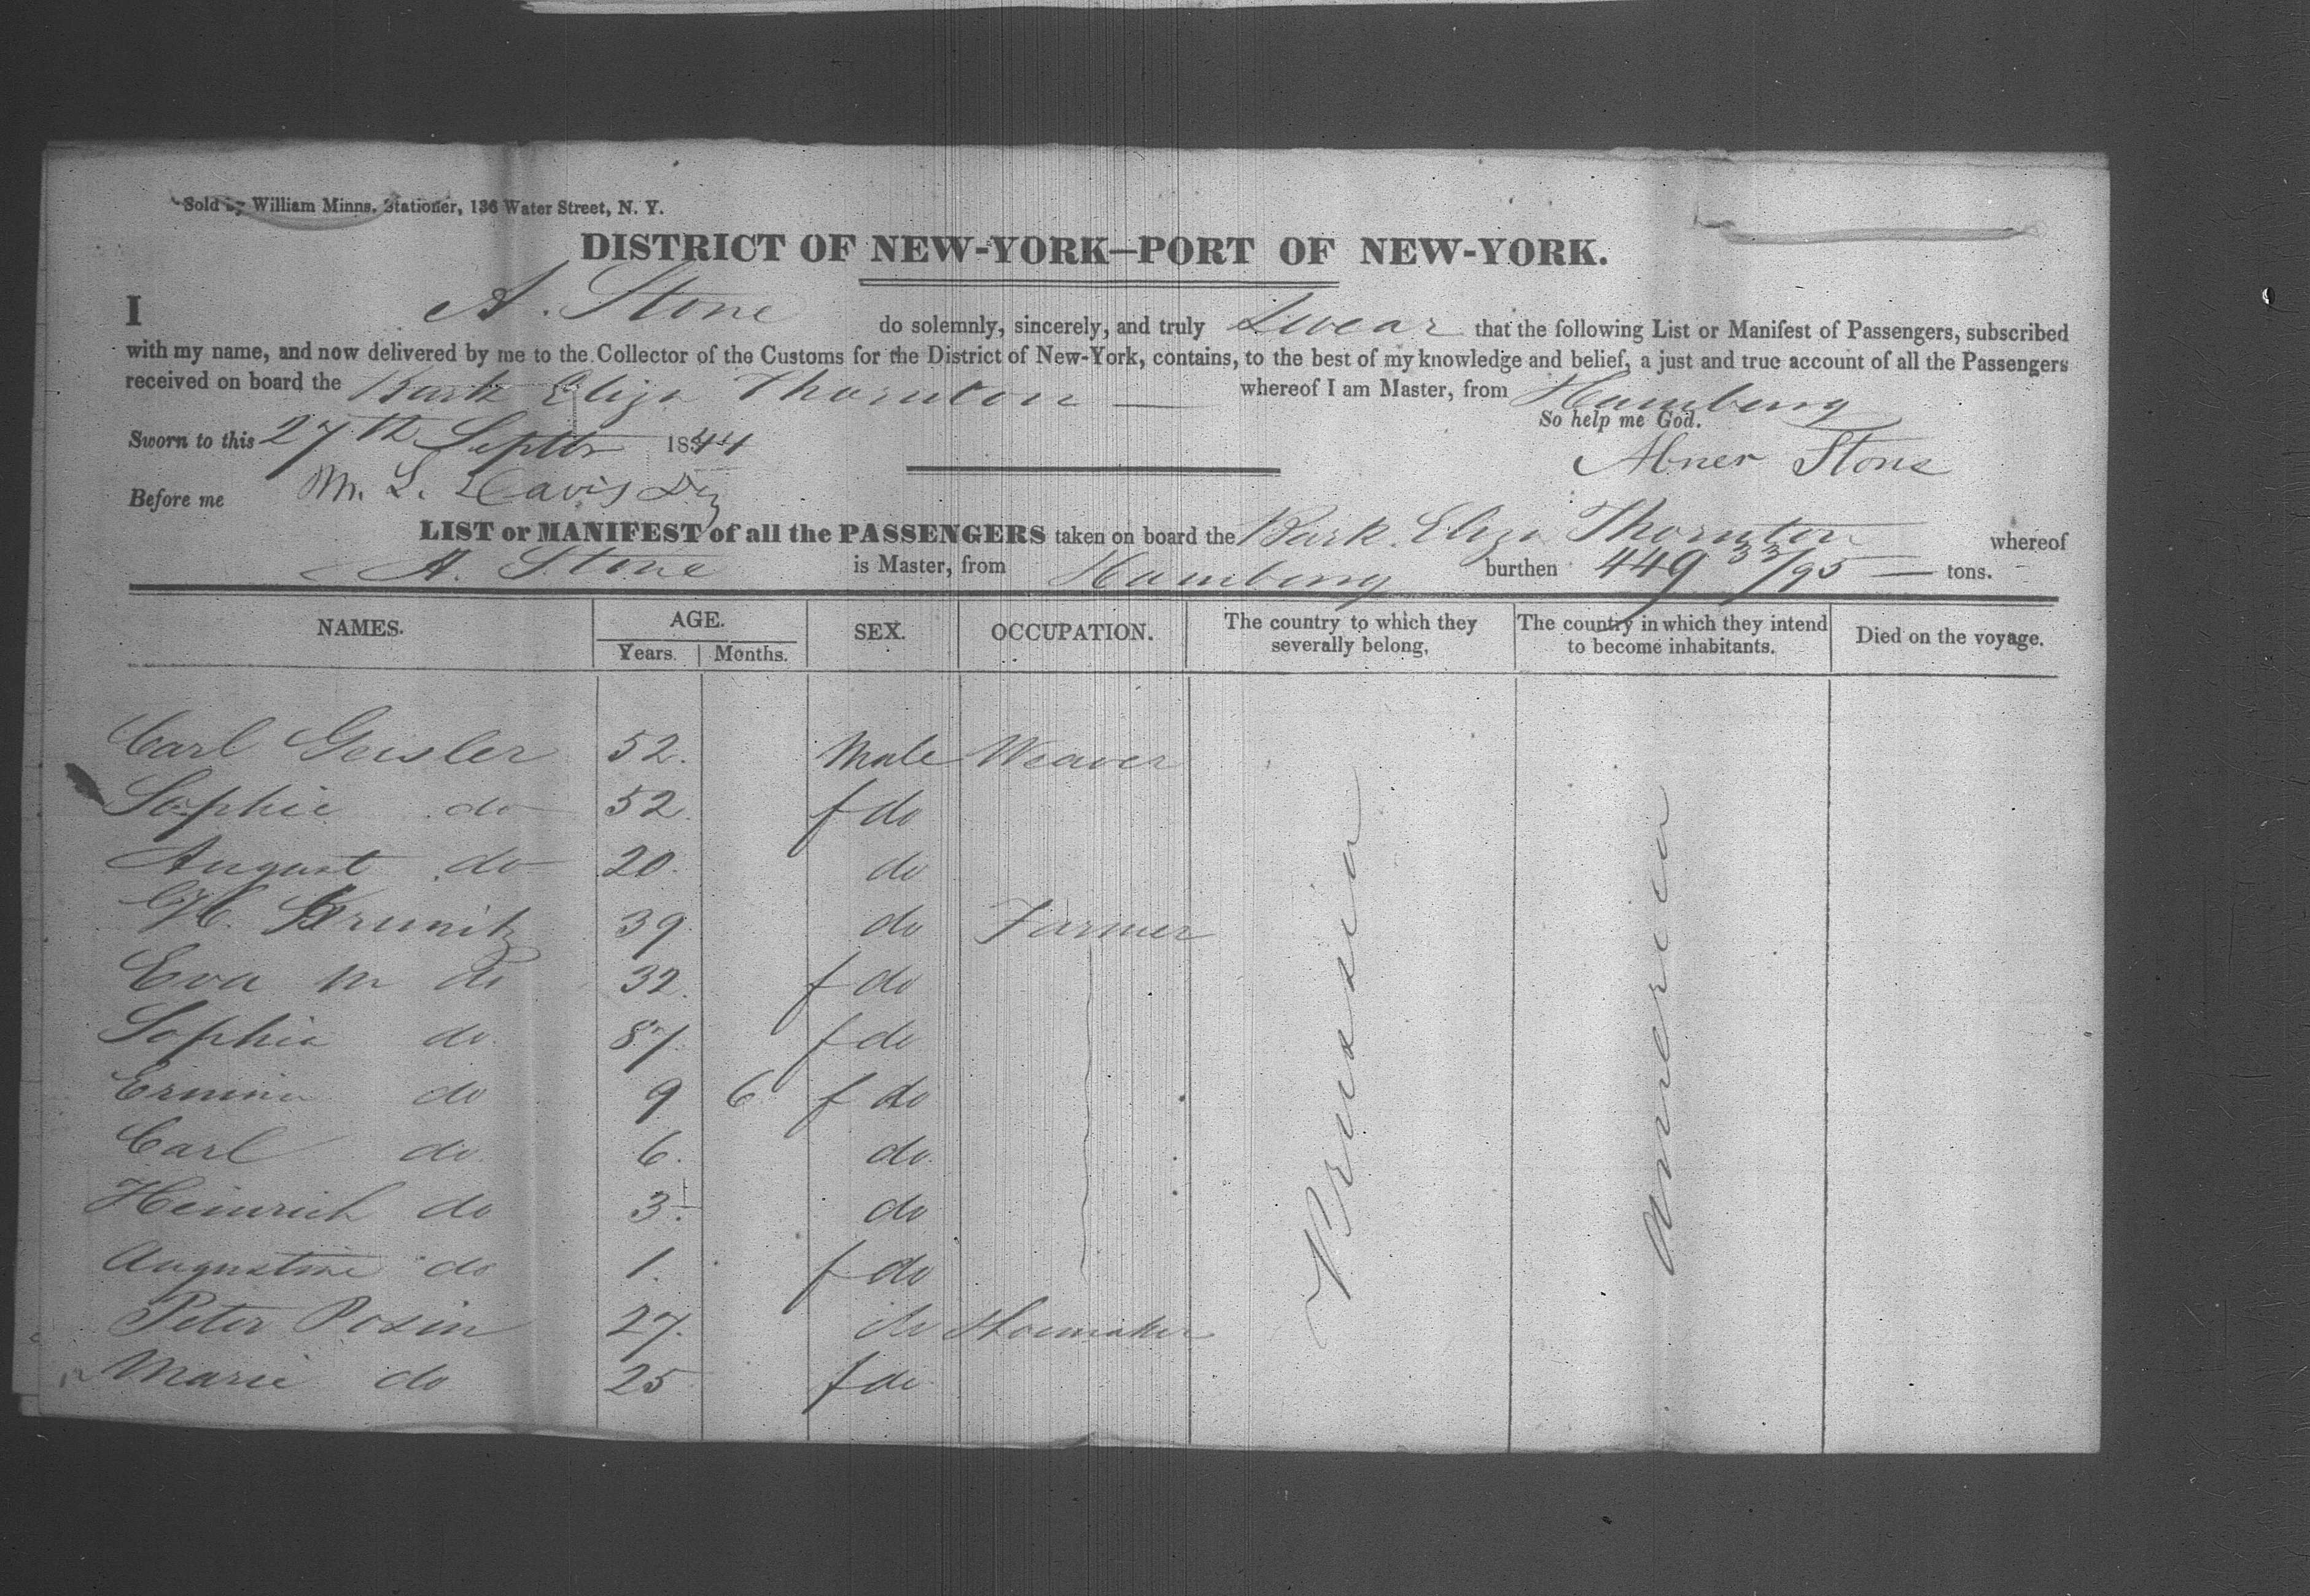 Sold by William Minns, Stationer, 136 Water Street, N. Y.
DISTRICT OF NEW-YORK—PORT OF NEW-YORK.
I A. Stone do solemnly, sincerely, and truly Swear that the following List or Manifest of Passengers, subscribed
with my name, and now delivered by me to the Collector of the Customs for the District of New-York, contains, to the best of my knowledge and belief, a just and true account of all the Passengers
received on board the Bark Eliza Thornton — whereof I am Master, from Hamburg
So help me God.
Sworn to this 27th Septbr 1844
Abner Stone
Before me M. L. Davis
LIST or MANIFEST of all the PASSENGERS taken on board the Bark Eliza Thornton whereof
A. Stone is Master, from Hamburg burthen 449 33/95 — tons.
NAMES. AGE. SEX. OCCUPATION. The country to which they severally belong, The country in which they intend to become inhabitants. Died on the voyage.
Years. Months.
Carl Geisler 52. Male Weaver
Sophie do 52. f do
August do 20. do
39. do Farmer
Eva M do 32. f do
Sophia do 87. f do
do 9 6 f do
Carl do 6. do
Heinrich do 3. do
Augustine do 1. f do
Peter Posin 27. do Shoemaker
Marie do 25 f do
Prussia
America